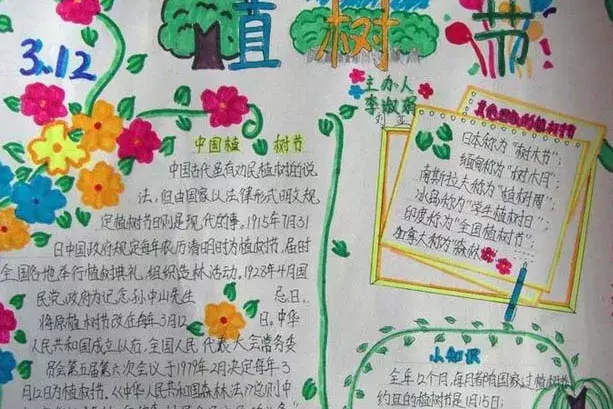 3.12
植树节
主办人
中国植树节
中国古代虽有劝民植树的说
法,但由国家以法律形式明文规
定植树节日则是现代的事。1915年7月31
日中国政府规定每年农历清明时为植树节,届时
全国各地举行植树典礼,组织造林活动。1928年4月国
民党政府为记念孙中山先生 忌日,
将原植树节改在每年3月12日。中华
人民共和国成立以后,全国人民代表大会常务委
员会第五届第六次会议于1979年2月决定每年3
月12日为植树节。《中华人民共和国森林法》总则中
其他国家的植树节
日本称为“树木节”;
缅甸称为“树木月”;
南斯拉夫称为“植树周”;
冰岛称为“学生植树日”;
印度称为“全国植树节”;
加拿大称为“森林
小知识
全年12个月,每月都有国家过植树节
约旦的植树节是1月15日;